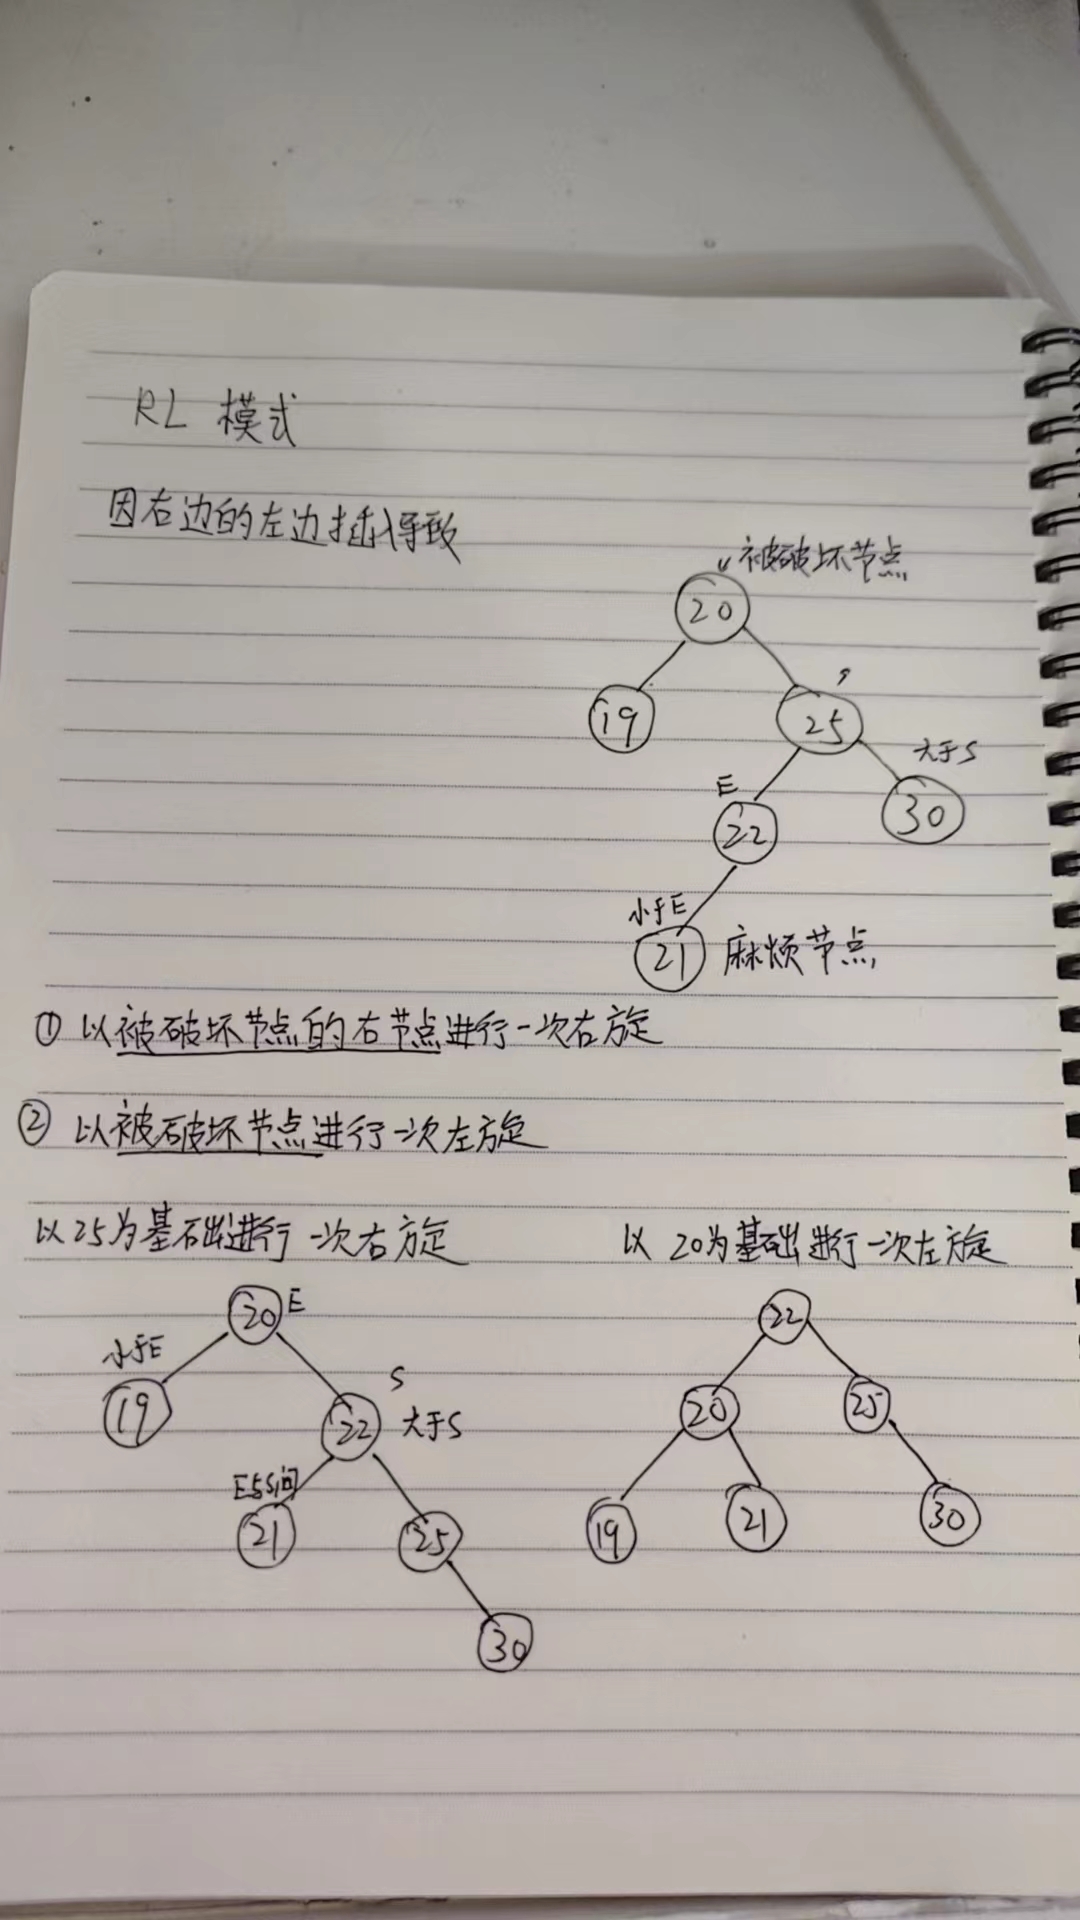 RL 模式
因右边的左边插入导致
被破坏节点
20
19
25
大于S
E
22
30
小于E
21 麻烦节点
① 以被破坏节点的右节点进行一次右旋
② 以被破坏节点进行一次左旋
以25为基础进行一次右旋
以 20为基础进行一次左旋
20 E
小于E
19
S
22 大于S
E与S间
21
25
30
22
20
25
19
21
30